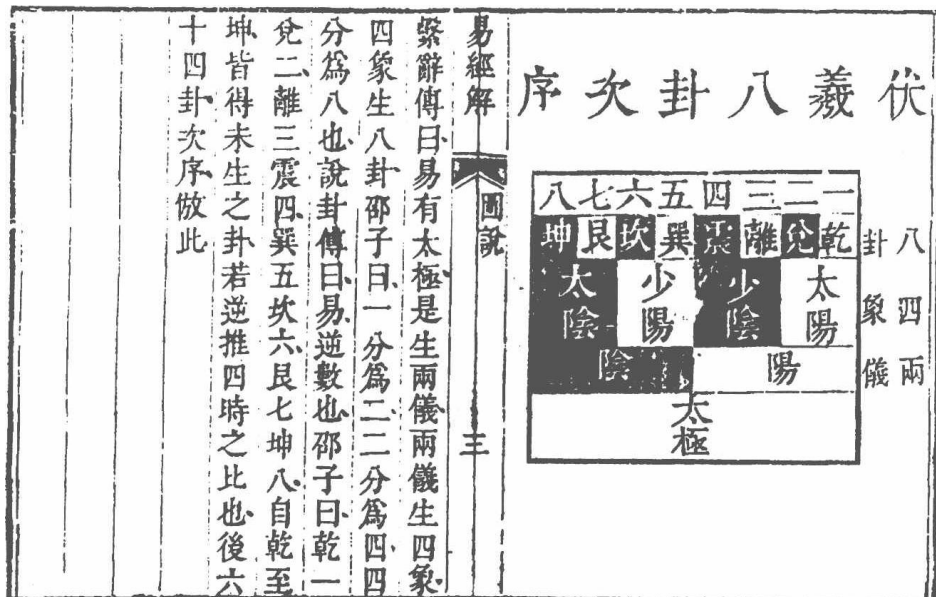 伏羲八卦次序
一二三四五六七八
乾兌離震巽坎艮坤
太陽 少陰 少陽 太陰
陽 陰
太極
八卦
四象
兩儀
易經解 圖說 三
繫辭傳曰易有太極是生兩儀兩儀生四象
四象生八卦邵子曰一分爲二二分爲四四
分爲八也說卦傳曰易逆數也邵子曰乾一
兌二離三震四巽五坎六艮七坤八自乾至
坤皆得未生之卦若逆推四時之比也後六
十四卦次序倣此